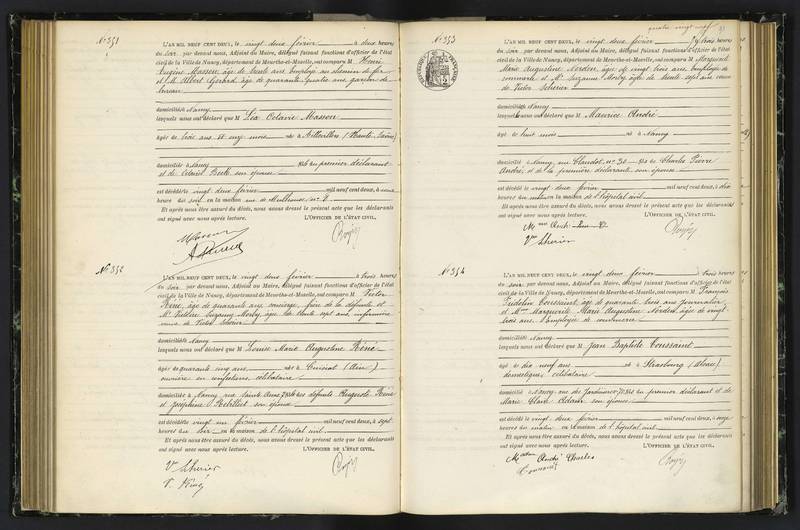 N° 351
L'AN MIL NEUF CENT DEUX, le vingt deux février à deux heures
du soir par devant nous, Adjoint au Maire, délégué faisant fonctions d'officier de l'état
civil de la Ville de Nancy, département de Meurthe-et-Moselle, ont comparu M Henri
Eugène Masson âgé de trente ans employé au chemin de fer
et M. Albert Gérard âgé de quarante quatre ans garçon de
domiciliés à Nancy
lesquels nous ont déclaré que M Léa Octavie Masson
âgée de trois ans et onze mois née à Aillevillers (Haute-Saône)
domiciliée à Nancy fille du premier déclarant
et de son épouse
est décédée le vingt deux février mil neuf cent deux, à
heures du soir en la maison rue de Mulhouse n°
Et après nous être assuré du décès, nous avons dressé le présent acte que les déclarants
ont signé avec nous après lecture. L'OFFICIER DE L'ÉTAT CIVIL,
N° 352
L'AN MIL NEUF CENT DEUX, le vingt deux février à trois heures
du soir par devant nous, Adjoint au Maire, délégué faisant fonctions d'officier de l'état
civil de la Ville de Nancy, département de Meurthe-et-Moselle, ont comparu M Victor
René, âgé de quarante ans concierge, frère de la défunte et
Suzanne Morly âgée de trente sept ans infirmière
veuve de Victor
domiciliés à Nancy
lesquels nous ont déclaré que M Louise Marie Augustine René
âgée de quarante cinq ans née à Cuisiat (Ain)
ouvrière en confections célibataire
domiciliée à Nancy rue Sainte Anne fille des défunts Auguste René
et Joséphine son épouse
est décédée le vingt un février mil neuf cent deux, à sept
heures du soir en la maison de l'hôpital civil
Et après nous être assuré du décès, nous avons dressé le présent acte que les déclarants
ont signé avec nous après lecture. L'OFFICIER DE L'ÉTAT CIVIL,
V. René
quatre vingt neuf
N° 353
L'AN MIL NEUF CENT DEUX, le vingt deux février à trois heures
du soir par devant nous, Adjoint au Maire, délégué faisant fonctions d'officier de l'état
civil de la Ville de Nancy, département de Meurthe-et-Moselle, ont comparu M Marguerite
Marie Augustine Norden âgée de vingt trois ans employée de
commerce et Mme Suzanne Morly âgée de trente sept ans veuve
de Victor
domiciliés à Nancy
lesquels nous ont déclaré que M Maurice André
âgé de huit mois né à Nancy
domicilié à Nancy, rue Claudot n° 30 fils de Charles Pierre
André, et de la première déclarante son épouse
est décédé le vingt deux février mil neuf cent deux, à dix
heures du matin en la maison de l'hôpital civil
Et après nous être assuré du décès, nous avons dressé le présent acte que les déclarants
ont signé avec nous après lecture. L'OFFICIER DE L'ÉTAT CIVIL,
N° 354
L'AN MIL NEUF CENT DEUX, le vingt deux février à trois heures
du soir par devant nous, Adjoint au Maire, délégué faisant fonctions d'officier de l'état
civil de la Ville de Nancy, département de Meurthe-et-Moselle, ont comparu M François
Fridolin Toussaint, âgé de quarante trois ans journalier
et Mme Marguerite Marie Augustine Norden âgée de vingt
trois ans employée de commerce
domiciliés à Nancy
lesquels nous ont déclaré que M Jean Baptiste Toussaint
âgé de dix neuf ans né à Strasbourg (Alsace)
domestique, célibataire
domicilié à Nancy rue des Jardiniers fils du premier déclarant et de
Marie Claire son épouse
est décédé le vingt deux février mil neuf cent deux, à onze
heures du matin en la maison de l'hôpital civil
Et après nous être assuré du décès, nous avons dressé le présent acte que les déclarants
ont signé avec nous après lecture. L'OFFICIER DE L'ÉTAT CIVIL,
André Charles
Toussaint